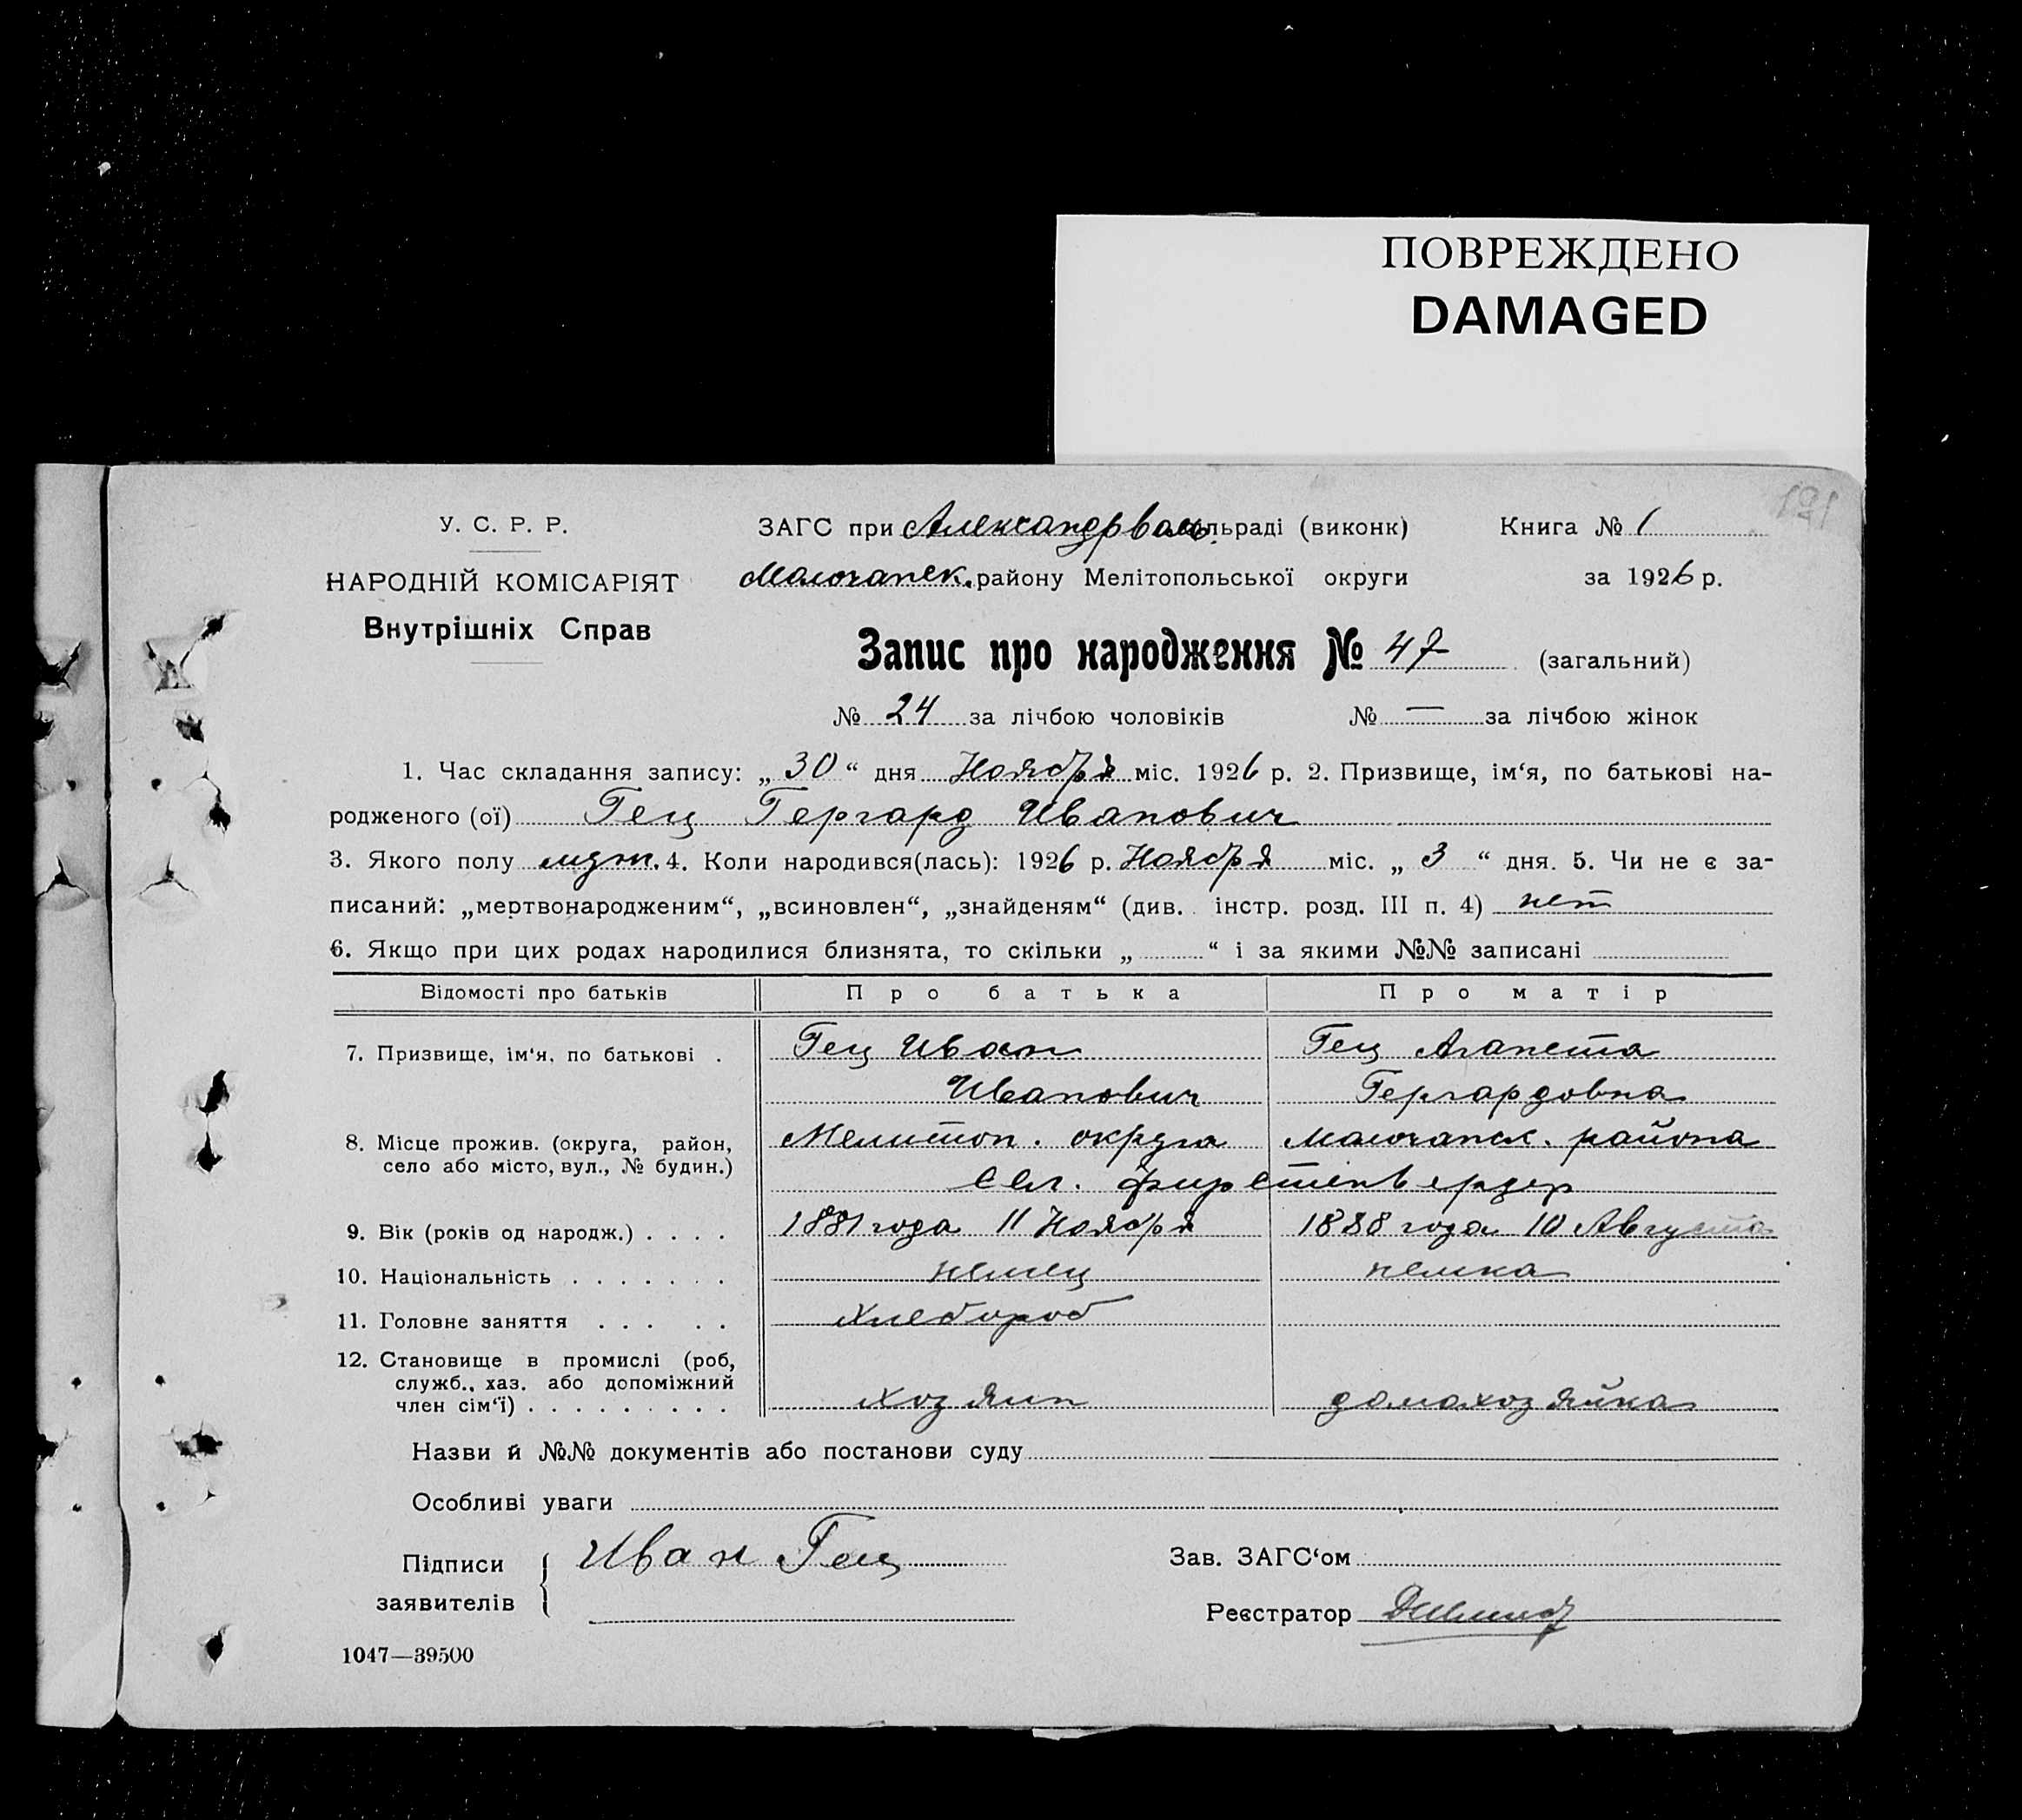 ПОВРЕЖДЕНО
DAMAGED
191
У. С. Р. Р. ЗАГС при Александрваль. сільраді (виконк) Книга № 1
НАРОДНІЙ КОМІСАРІЯТ Молочанск. району Мелітопольської округи за 1926 р.
Внутрішніх Справ
Запис про народження № 47 (загальний)
№ 24 за лічбою чоловіків № — за лічбою жінок
1. Час складання запису: „ 30 “ дня Ноября міс. 1926 р. 2. Призвище, ім‘я, по батькові на-
родженого (ої) Гец Гергард Иванович
3. Якого полу муж. 4. Коли народився(лась): 1926 р. Ноября міс. „ 3 “ дня. 5. Чи не є за-
писаний: „мертвонародженим“, „всиновлен“, „знайденям“ (див. інстр. розд. III п. 4) нет
6. Якщо при цих родах народилися близнята, то скільки „ “ і за якими №№ записані
Відомості про батьків Про батька Про матір
7. Призвище, ім‘я, по батькові . Гец Иван Гец Аганета
Иванович Гергардовна
8. Місце прожив. (округа, район, Мелитоп. округа Молочанск. района
село або місто, вул., № будин.) сел. Фирстенвердер
9. Вік (років од народж.) . . . . 1881 года 11 Ноября 1888 года 10 Августа
10. Національність . . . . . . . немец немка
11. Головне заняття . . . . . хлебороб
12. Становище в промислі (роб,
служб., хаз. або допоміжний
член сім‘ї) . . . . . . . . . хозяин домохозяйка
Назви й №№ документів або постанови суду
Особливі уваги
Підписи Иван Гец Зав. ЗАГС‘ом
заявителів Реєстратор
1047—39500